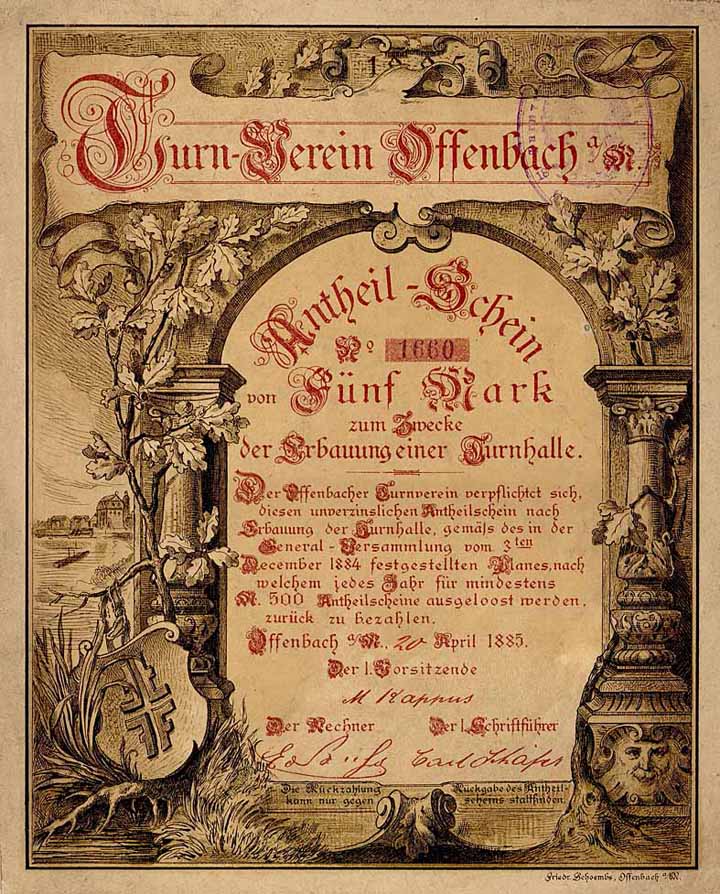 1885
Turn-Verein Offenbach a/M.
Antheil-Schein
No 1660
von Fünf Mark
zum Zwecke
der Erbauung einer Turnhalle.
Der Offenbacher Turnverein verpflichtet sich,
diesen unverzinslichen Antheilschein nach
Erbauung der Turnhalle, gemäß des in der
General-Versammlung vom 3ten
December 1884 festgestellten Planes, nach
welchem jedes Jahr für mindestens
M. 500 Antheilscheine ausgeloost werden,
zurück zu bezahlen.
Offenbach a/M., 20 April 1885.
Der I. Vorsitzende
M Kappus
Der Rechner Der I. Schriftführer
Carl Schäfer
Die Rückzahlung Rückgabe des Antheil-
kann nur gegen scheins stattfinden.
Friedr. Schoembs, Offenbach a/M.